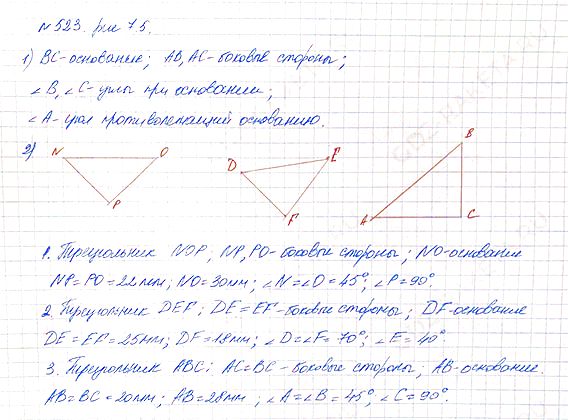 №523. рис 75.
1) BC-основание; AB, AC-боковые стороны;
∠B, ∠C-углы при основании;
∠A-угол противолежащий основанию.
2) N O P D E F A B C
1. Треугольник NOP; NP, PO-боковые стороны; NO-основание
NP=PO=22мм; NO=30мм; ∠N=∠O=45°; ∠P=90°
2. Треугольник DEF; DE=EF-боковые стороны; DF-основание
DE=EF=25мм; DF=18мм; ∠D=∠F=70°; ∠E=40°
3. Треугольник ABC: AC=BC-боковые стороны; AB-основание.
AB=BC=20мм; AB=28мм; ∠A=∠B=45°; ∠C=90°.